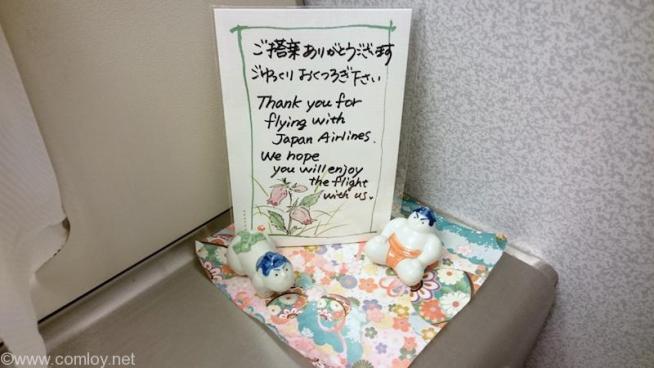 ご搭乗ありがとうございます
ごゆっくりおくつろぎ下さい
Thank you for
flying with
Japan Airlines.
We hope
you will enjoy
the flight
with us.
©www.comloy.net